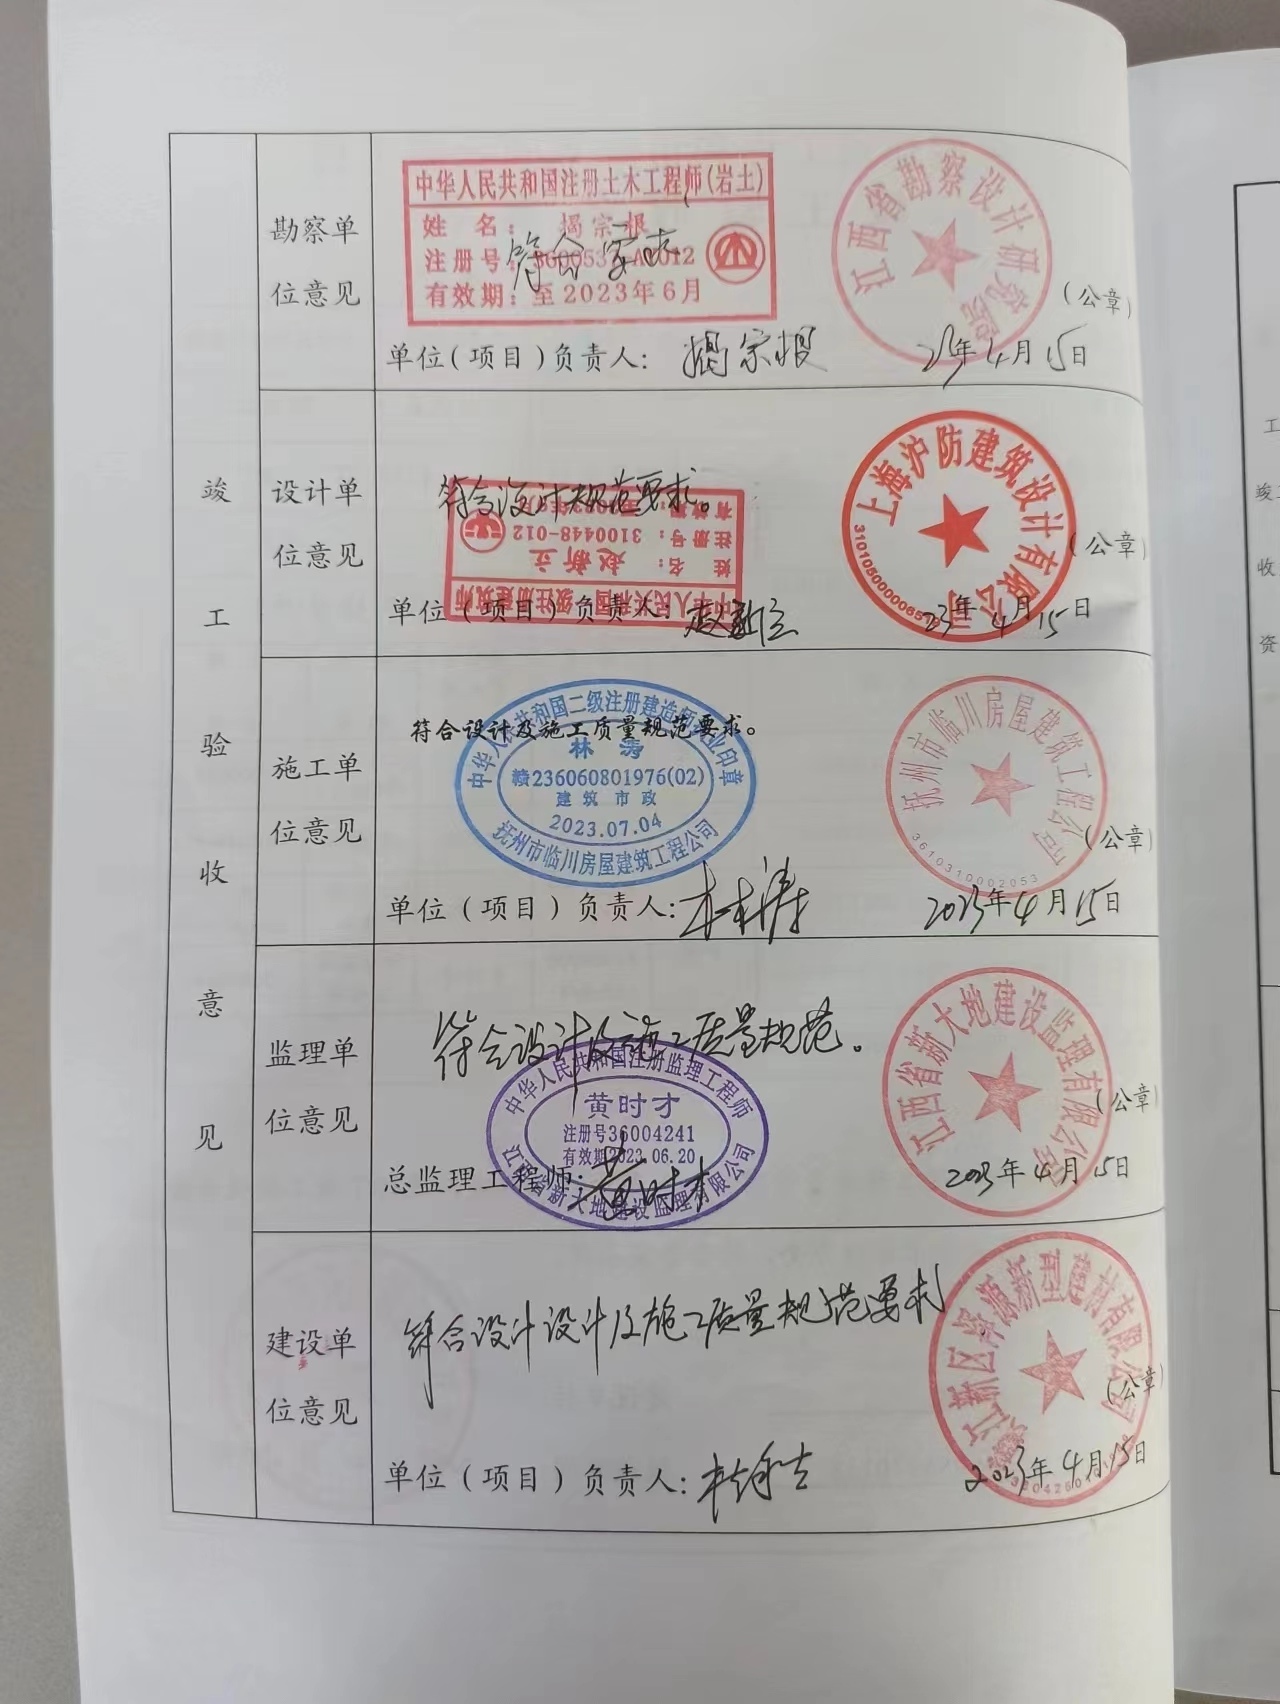 竣工验收意见
勘察单位意见
中华人民共和国注册土木工程师(岩土)
姓 名: 揭宗根
注册号:
有效期: 至2023年6月
符合要求
江西省勘察设计研究院
(公章)
单位(项目)负责人: 揭宗根 23年4月15日
设计单位意见
符合设计规范要求。
中华人民共和国一级注册建筑师
姓 名: 赵新立
注册号: 3100448-012
上海沪防建筑设计有限公司
(公章)
单位(项目)负责人: 赵新立 23年4月15日
施工单位意见
中华人民共和国二级注册建造师执业印章
符合设计及施工质量规范要求。
林涛
赣236060801976(02)
建筑市政
2023.07.04
抚州市临川房屋建筑工程公司
抚州市临川房屋建筑工程公司
3610310002053
(公章)
单位(项目)负责人: 林涛 2023年4月15日
监理单位意见
符合设计及施工质量规范。
中华人民共和国注册监理工程师
黄时才
注册号36004241
有效期2023.06.20
江西省新大地建设监理有限公司
江西省新大地建设监理有限公司
(公章)
总监理工程师: 黄时才 2023年4月15日
建设单位意见
符合设计设计及施工质量规范要求
新型建材有限公司
(公章)
单位(项目)负责人: 2023年4月15日
工
竣
收
资